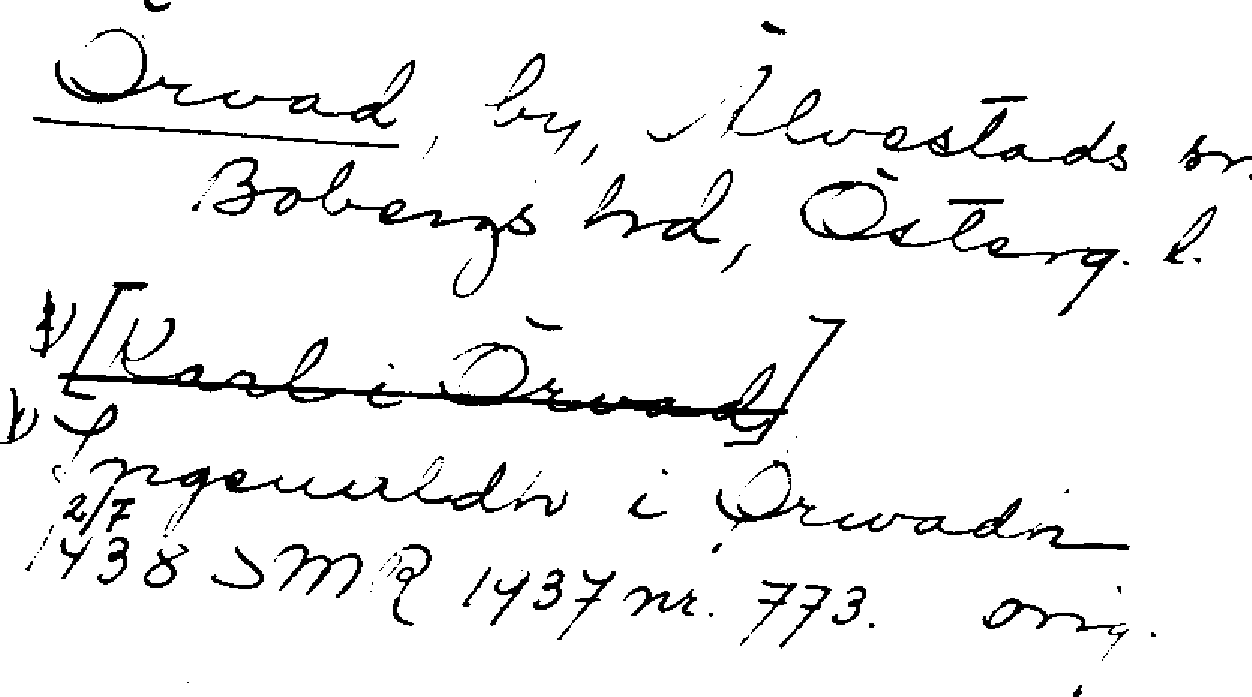 Örvad, by, Älvestads sn.
Bobergs hd, Österg. l.
1) [Karl i Örvad]
1) Ingeuueldh i Ørwadh
2/7
1438 SMR 1437 nr. 773. orig.